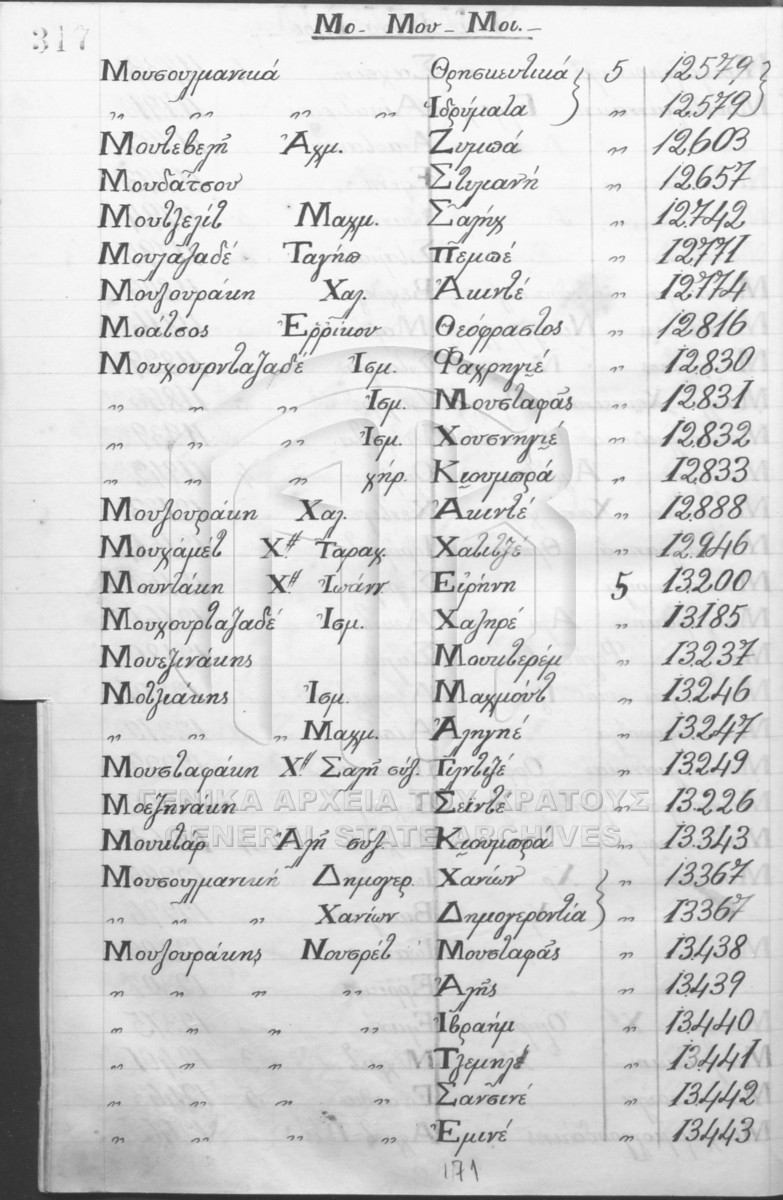 317
Μο - Μου - Μοι. -
Μουσουλμανικά Θρησκευτικά 5 12.579
〃 〃 〃 〃 Ἱδρύματα 〃 12.579
Μουτεβελῆ Ἀχμ. Ζυμπά 〃 12.603
Μουδάτσου Στυλιανή 〃 12.657
Μουτζελίτ Μαχμ. Σαλήχ 〃 12.742
Μουλαζαδέ Ταγήπ Πεμπέ 〃 12.771
Μουζουράκη Χαλ. Ἀκιντέ 〃 12.774
Μοάτσος Ἐρρίκου Θεόφραστος 〃 12.816
Μουχουρνταζαδέ Ἰσμ. Φαχρηγιέ 〃 12.830
〃 〃 〃 Ἰσμ. Μουσταφᾶς 〃 12.831
〃 〃 〃 Ἰσμ. Χουσνηγιέ 〃 12.832
〃 〃 〃 χήρ. Κιουμπρά 〃 12.833
Μουζουράκη Χαλ. Ἀκιντέ 〃 12.888
Μουχάμετ Χ〃 Ταραχ. Χατιτζέ 〃 12.946
Μουντάκη Χ〃 Ἰωάνν. Εἰρήνη 5 13.200
Μουχουρταζαδέ Ἰσμ. Χαληρέ 〃 13.185
Μουεζινάκης Μουκτερέμ 〃 13.237
Μοτζιάκης Ἰσμ. Μαχμούντ 〃 13.246
〃 〃 〃 Μαχμ. Ἀληγιέ 〃 13.247
Μουσταφάκη Χ〃 Σαλῆ σύζ. Γιλντιζέ 〃 13.249
Μοεζηνάκη Σειντέ 〃 13.226
ΓΕΝΙΚΑ ΑΡΧΕΙΑ ΤΟΥ ΚΡΑΤΟΥΣ
GENERAL STATE ARCHIVES
Μουκταρ Ἀλῆ συζ. Κιουμπρά 〃 13.343
Μουσουλμανική Δημογερ. Χανίων 〃 13.367
〃 〃 〃 Χανίων Δημογεροντία 〃 13.367
Μουζουράκης Νουσρέτ Μουσταφᾶς 〃 13.438
〃 〃 〃 〃 Ἀλῆς 〃 13.439
〃 〃 〃 〃 Ἰβραήμ 〃 13.440
〃 〃 〃 〃 Τζεμηλέ 〃 13.441
〃 〃 〃 〃 Σανσινέ 〃 13.442
〃 〃 〃 〃 Ἐμινέ 〃 13.443
171